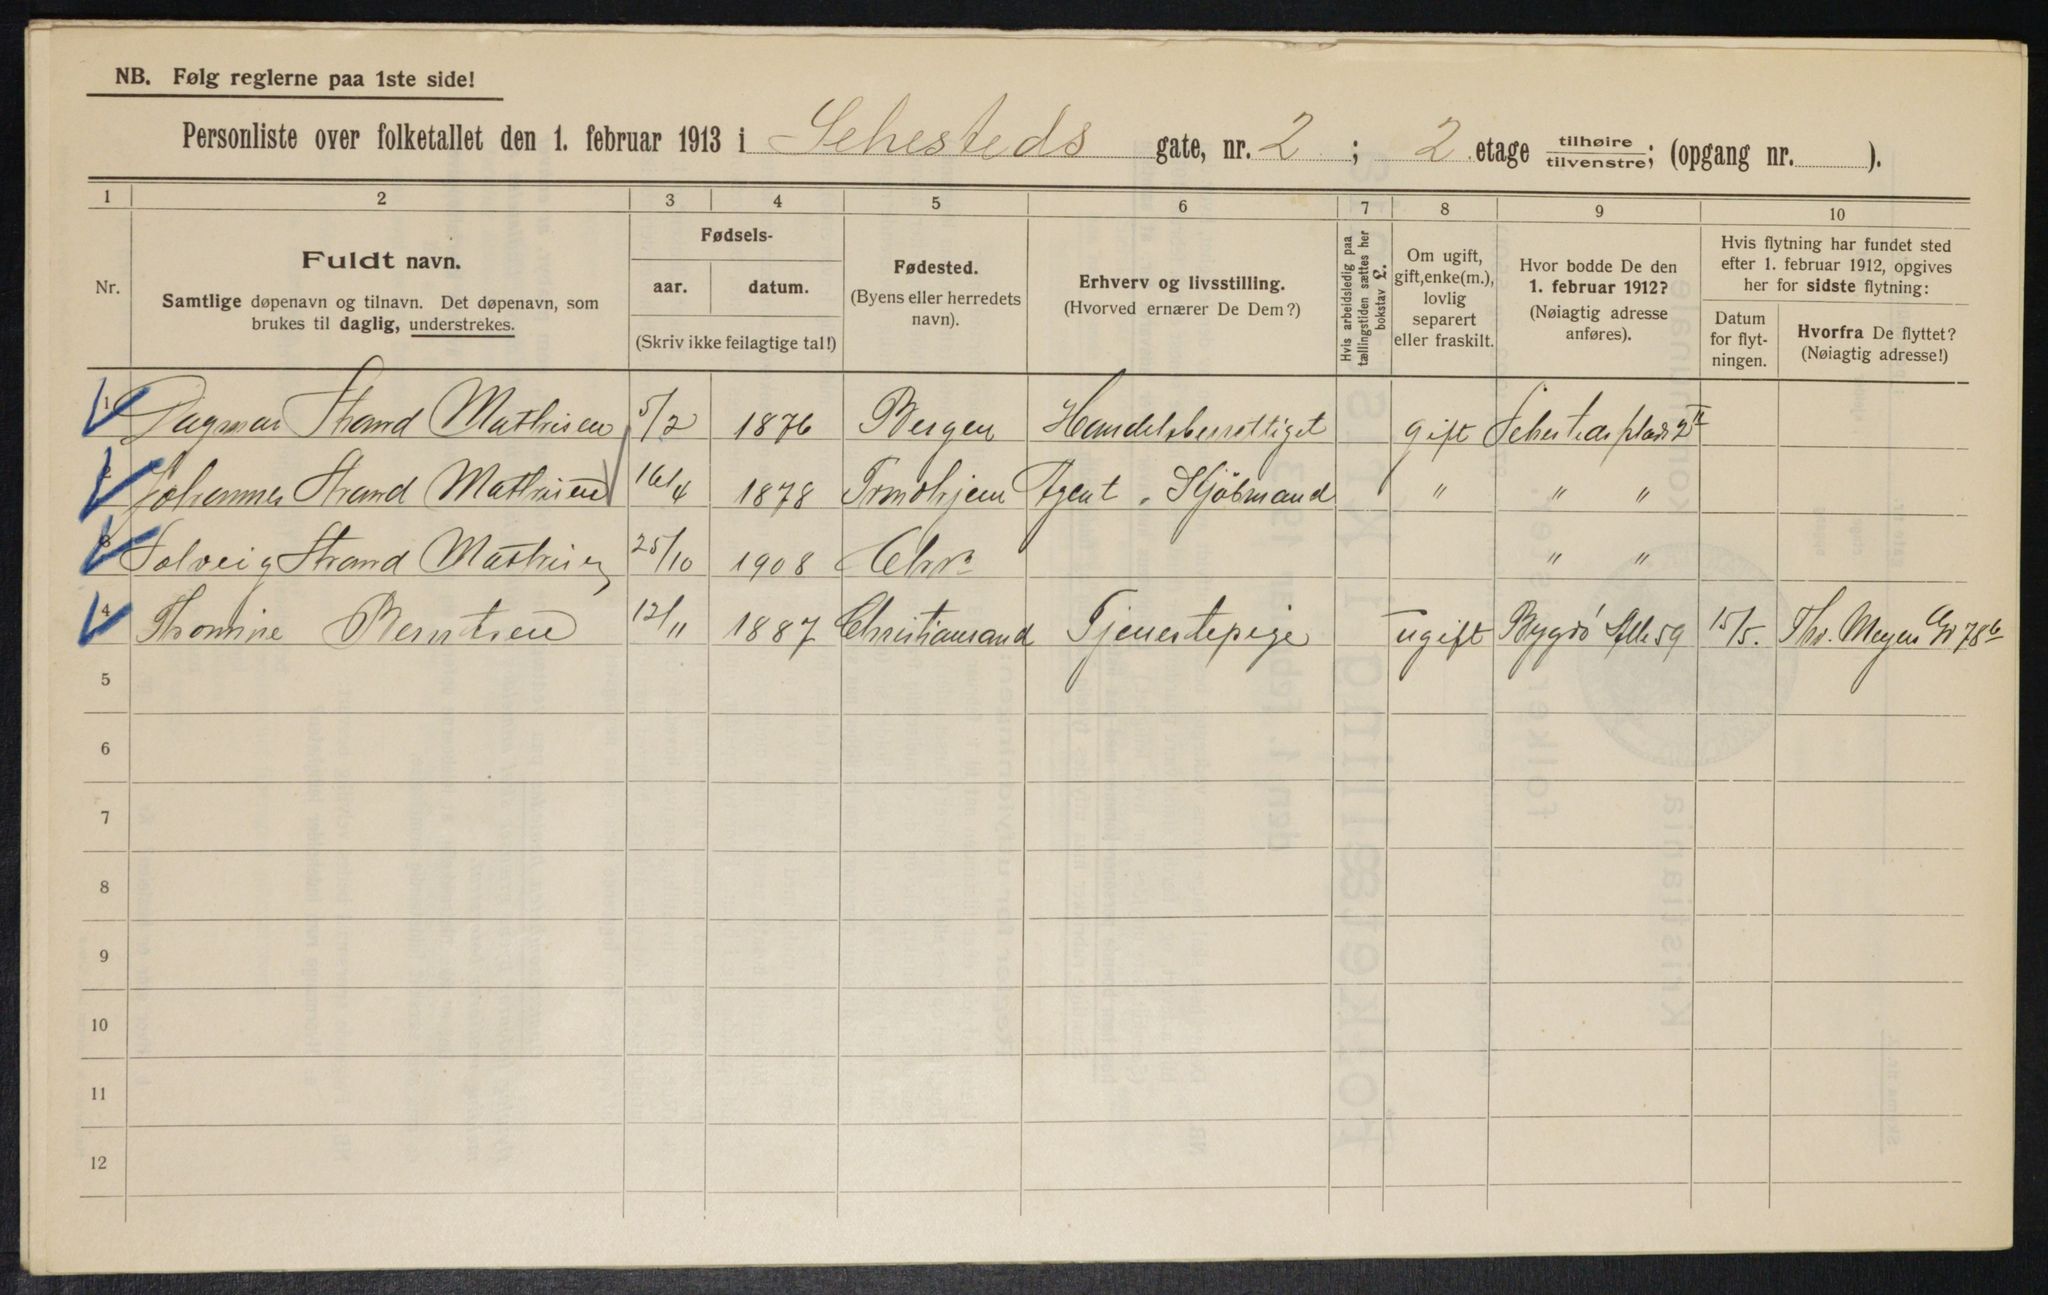 NB. Følg reglerne paa 1ste side!
Personliste over folketallet den 1. februar 1913 i Sehesteds gate, nr. 2 ; 2 etage tilhøire/tilvenstre; (opgang nr. ).
1 2 3 4 5 6 7 8 9 10
Nr.
Fuldt navn.
Samtlige døpenavn og tilnavn. Det døpenavn, som
brukes til daglig, understrekes.
Fødsels-
aar. datum.
(Skriv ikke feilagtige tal!)
Fødested.
(Byens eller herredets
navn).
Erhverv og livsstilling.
(Hvorved ernærer De Dem?)
Hvis arbeidsledig paa
tællingstiden sættes her
bokstav £.
Om ugift,
gift, enke(m.),
lovlig
separert
eller fraskilt.
Hvor bodde De den
1. februar 1912?
(Nøiagtig adresse
anføres).
Hvis flytning har fundet sted
efter 1. februar 1912, opgives
her for sidste flytning:
Datum
for flyt-
ningen.
Hvorfra De flyttet?
(Nøiagtig adresse!)
1 Dagmar Strand Mathisen 5/2 1876 Bergen Handelsberettiget gift Sehesteds plads 2 II
2 Johannes Strand Mathisen 16/4 1878 Trondhjem Agent. Kjöbmand " " "
3 Solveig Strand Mathisen 25/10 1908 Chra " "
4 Thomine Berntsen 12/11 1887 Christiansand Tjenestepige ugift Bygdö Alle 59 15/5. Th. Meyers Gd 78b
5
6
7
8
9
10
11
12